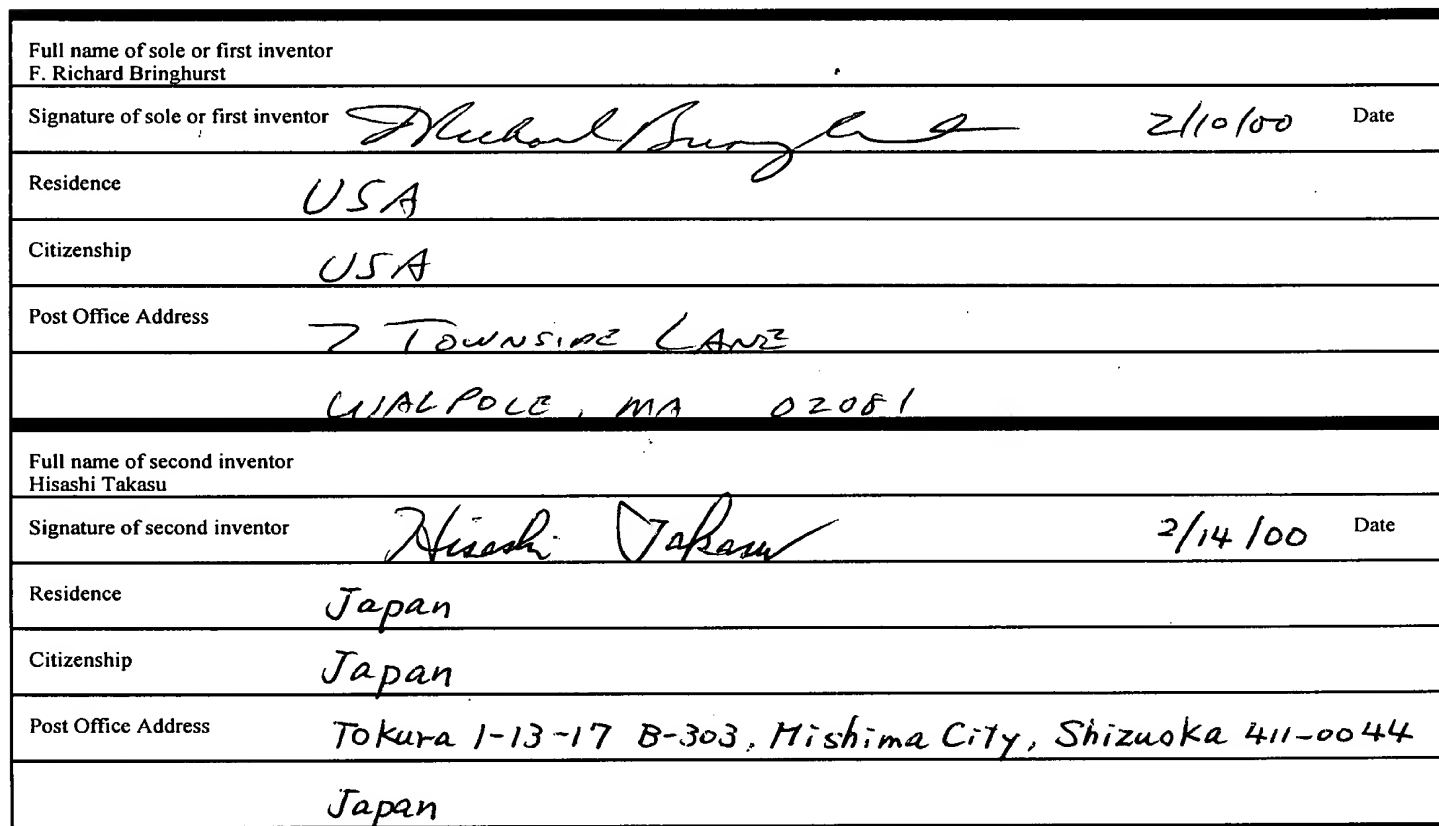 Full name of sole or first inventor
F. Richard Bringhurst
Signature of sole or first inventor 2/10/00 Date
Residence USA
Citizenship USA
Post Office Address 7 TOWNSIDE LANE
WALPOLE, MA 02081
Full name of second inventor
Hisashi Takasu
Signature of second inventor Hisashi Takasu 2/14/00 Date
Residence Japan
Citizenship Japan
Post Office Address Tokura 1-13-17 B-303, Mishima City, Shizuoka 411-0044
Japan